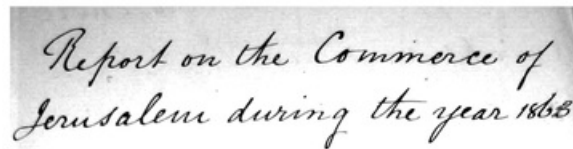 Report on the Commerce of
Jerusalem during the year 1863